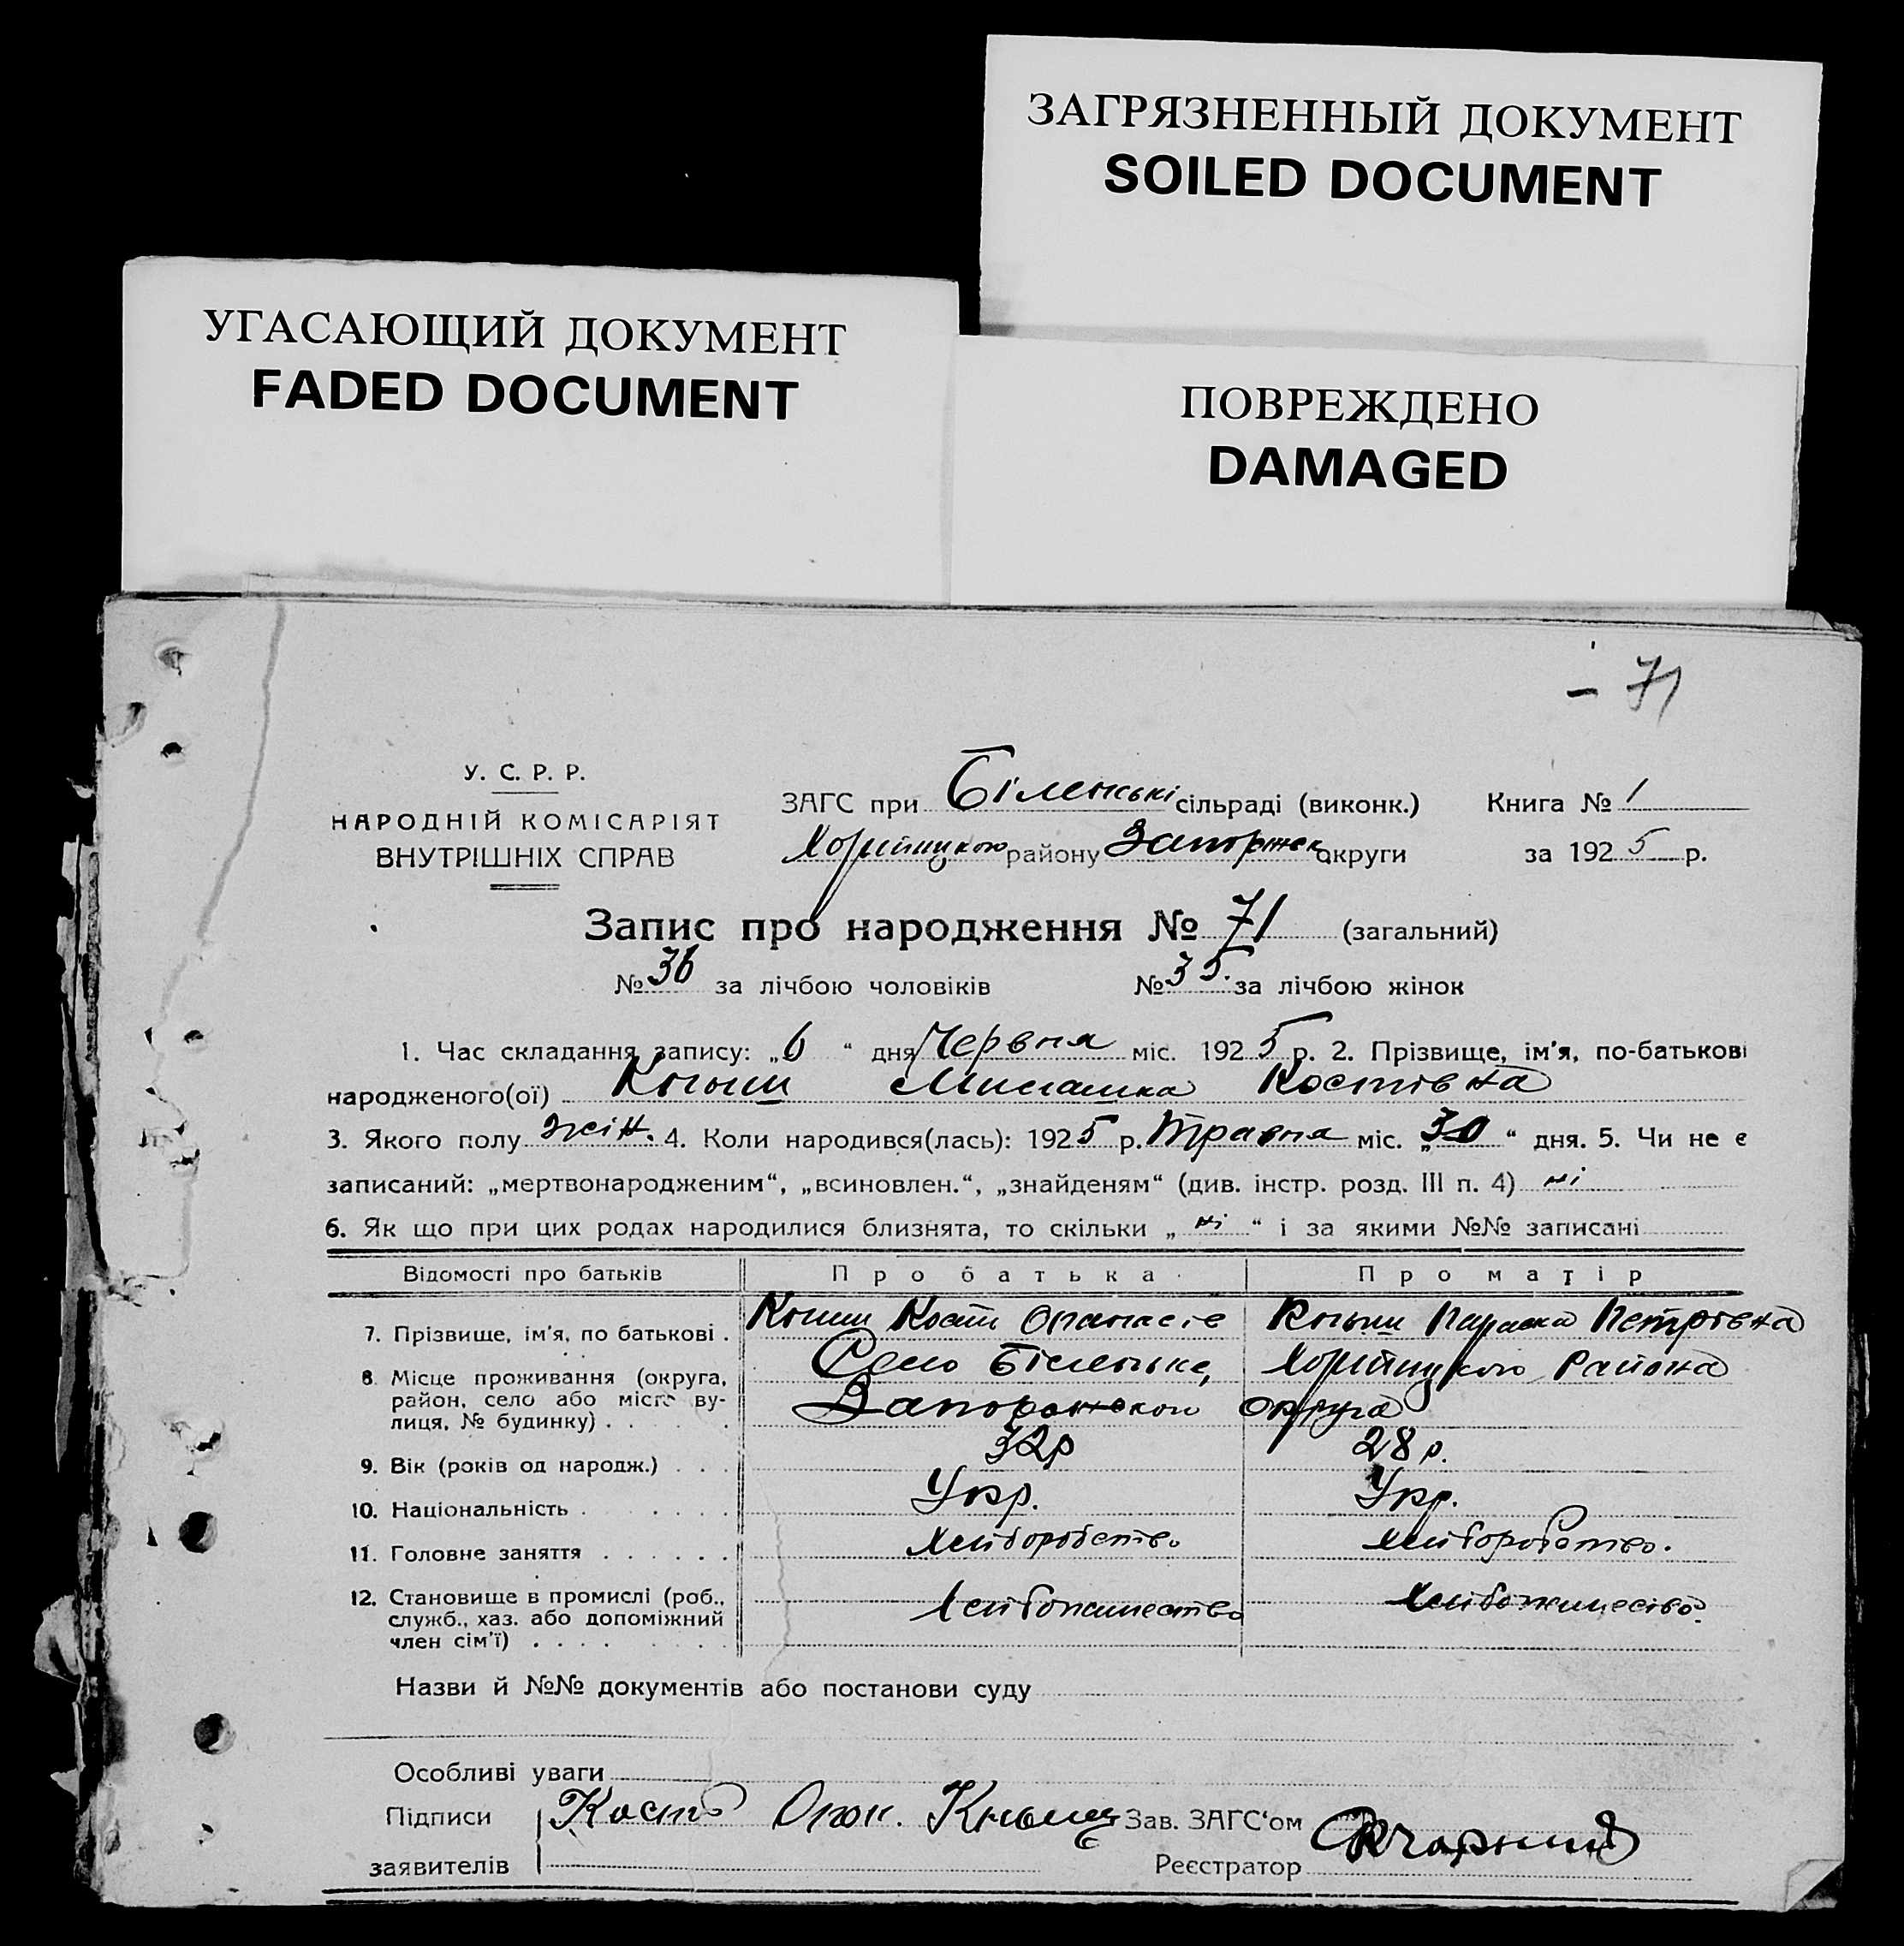 ЗАГРЯЗНЕННЫЙ ДОКУМЕНТ
SOILED DOCUMENT
УГАСАЮЩИЙ ДОКУМЕНТ
FADED DOCUMENT
ПОВРЕЖДЕНО
DAMAGED
– 71
У. С. Р. Р.
НАРОДНІЙ КОМІСАРІЯТ
ВНУТРІШНІХ СПРАВ
ЗАГС при Біленські сільраді (виконк.) Книга № 1
Хортицкою району Запоржск округи за 1925 р.
Запис про народження № 71 (загальний)
№ 36 за лічбою чоловіків № 35. за лічбою жінок
1. Час складання запису: „6“ дня Червня міс. 1925 р. 2. Прізвище, ім'я, по-батькові
народженого(ої) Костівна
3. Якого полу жін. 4. Коли народився(лась): 1925 р. Травня міс. „30“ дня. 5. Чи не є
записаний: „мертвонародженим“, „всиновлен.“, „знайденям“ (див. інстр. розд. III п. 4) ні
6. Як що при цих родах народилися близнята, то скільки „ні“ і за якими №№ записані
Відомості про батьків Про батька Про матір
7. Прізвище, ім'я, по батькові . Кость Опанасів Параска Петрівна
8. Місце проживання (округа, район, село або місто вулиця, № будинку) . Село Біленьке, Хортицкого Района
Запорожской округа
9. Вік (років од народж.) . . . 32р 28 р.
10. Національність . . . . . Укр. Укр.
11. Головне заняття . . . . . . Хлиборобство Хлиборобство.
12. Становище в промислі (роб., служб., хаз. або допоміжний член сім'ї) . . . .
Назви й №№ документів або постанови суду
Особливі уваги
Підписи Кость Опан. Зав. ЗАГС'ом
заявителів Реєстратор